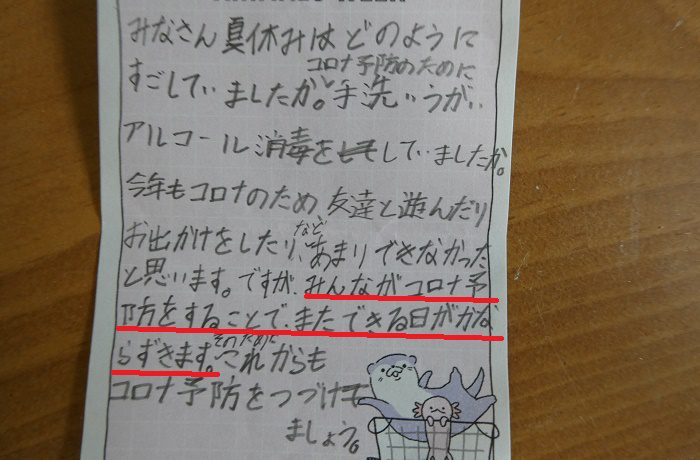 みなさん夏休みはどのように
コロナ予防のために
すごしていましたか。手洗いうがい
アルコール消毒をしていましたか。
今年もコロナのため友達と遊んだり
など
お出かけをしたり、あまりできなかった
と思います。ですが、みんながコロナ予
防をすることで、またできる日がかな
らずきます。これからも
そのために
コロナ予防をつづけ
ましょう。